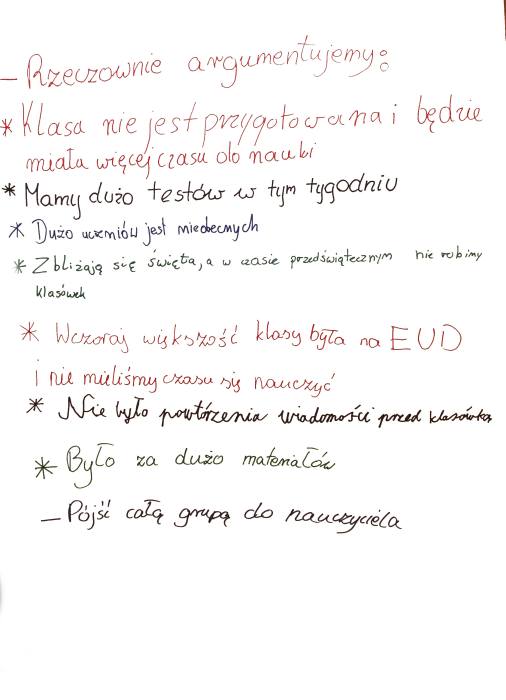 – Rzeczownie argumentujemy:
* Klasa nie jest przygotowana i będzie
miała więcej czasu do nauki
* Mamy dużo testów w tym tygodniu
* Dużo uczniów jest nieobecnych
* Zbliżają się święta, a w czasie przedświątecznym nie robimy
klasówek
* Wczoraj większość klasy była na EUD
i nie mieliśmy czasu się nauczyć
* Nie było powtórzenia wiadomości przed klasówką
* Było za dużo materiałów
– Pójść całą grupą do nauczyciela